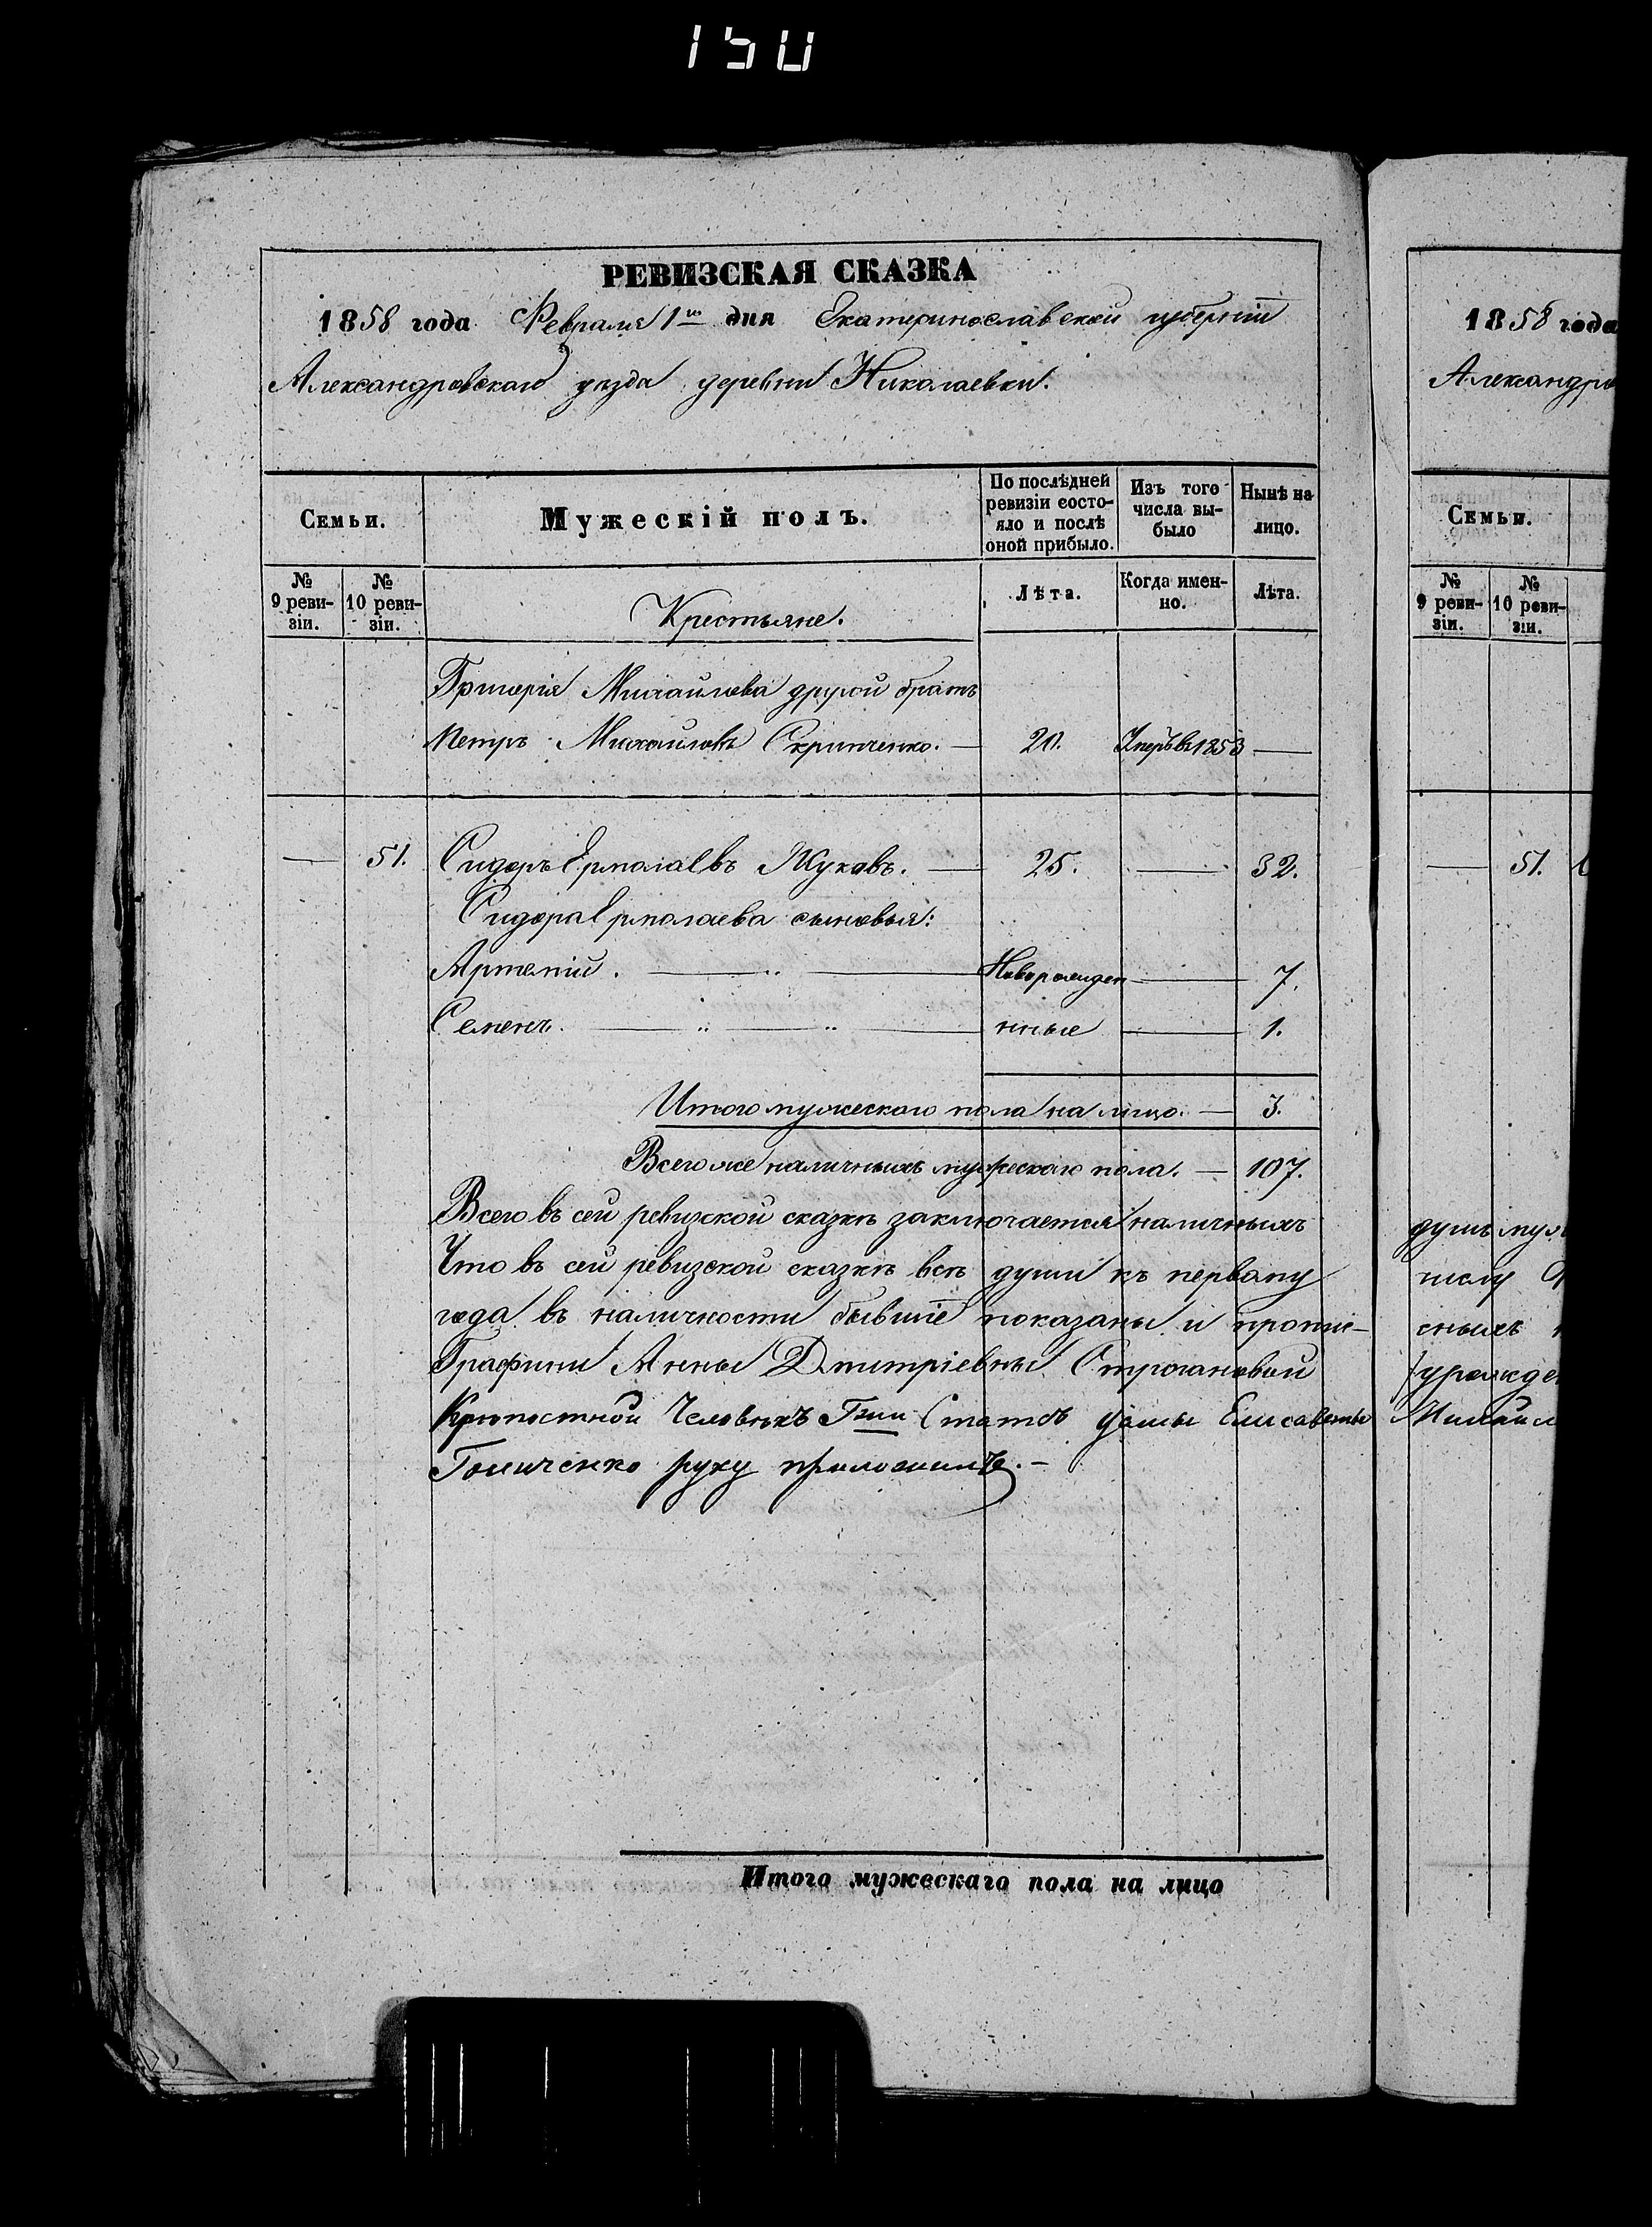 150
РЕВИЗСКАЯ СКАЗКА
1858 года Февраля 1го дня Екатеринославской губерніи
Александровскаго уѣзда деревни Николаевки.
Семьи.
Мужескій полъ.
По послѣдней ревизіи состо-
яло и послѣ
оной прибыло.
Изъ того
числа вы-
было
Нынѣ на
лицо.
№
9 реви-
зіи.
№
10 реви-
зіи.
Крестьяне.
Лѣта.
Когда имен-
но.
Лѣта.
Григорія Михайлова другой братъ
Петръ Михайловъ Скрипченко. — 20. 1853 —
— 51. Сидоръ Ермолаевъ Жуковъ. — 25. — 32.
Сидора Ермолаева сыновья:
Артемій. — " — Новорожден — 7.
Семенъ. — " — " — нные — 1.
Итого мужескаго пола на лицо. — 3.
Всего же наличныхъ мужескаго пола. — 107.
Всего въ сей ревизской сказкѣ заключается наличныхъ
Что въ сей ревизской сказкѣ всѣ души къ первому
года въ наличности бывшіе показаны и пропис-
Графини Анны Дмитріевны Строгановой
Крѣпостной Человѣкъ Гжи Статсъ дамы Елисаветы
руку приложилъ. —
Итого мужескаго пола на лицо
1858 года
Александро
Семьи.
№
9 реви-
зіи.
№
10 реви-
зіи.
— 51.
душъ муж
числу
сныхъ
урожде
Михайл